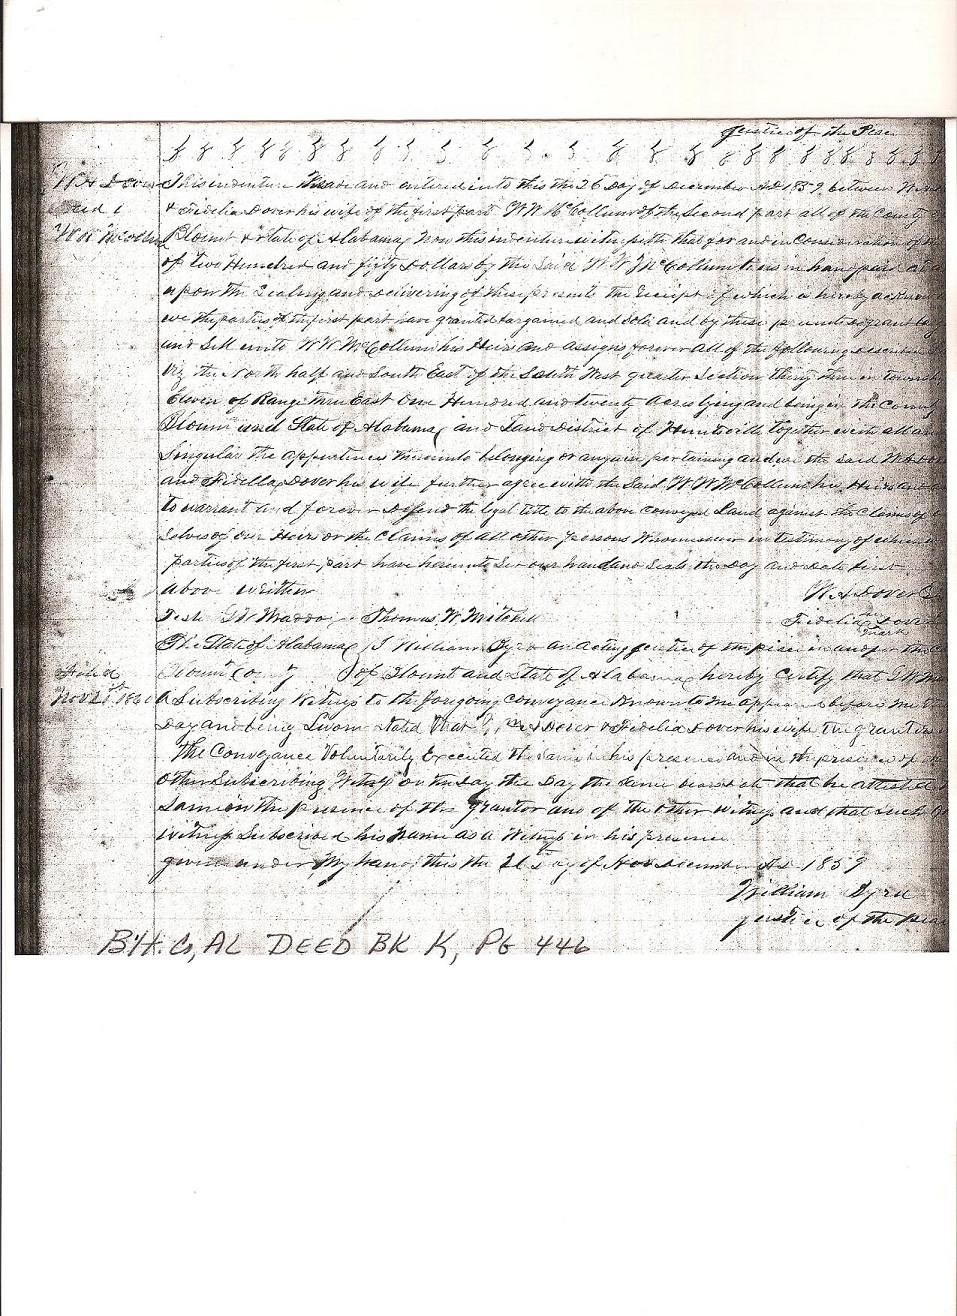 Justice of the Pese
W A Dover This indenture Made and entered into this the 26 Day of December AD 1859 between
Deed to & Fidelia Dover his wife of the first part W W McCollum of the Second part all of the County
W W McCollum Blount & State of Alabama, Now this indenture witnesseth that for and in Consideration of
of two Hundred and fifty Dollars by the Said W W McCollum to us in hand paid at
upon the Sealing and delivering of these presents the receipt of which is hereby
we the parties of the first part have granted bargained and Sold and by these presents do grant
and Sell unto W W McCollum his Heirs and assigns forever All of the following Described
viz the North half and South East of the South West quarter Section thirty three in
Eleven of Range three East One Hundred and twenty Acres lying and being in the County
Blount and State of Alabama, and Land District of Huntsville together with all and
Singular the appertinences thereunto belonging or anywise pertaining and we the Said W A
and Fidella Dover his wife further agree with the Said W W McCollum his Heirs and
to warrant and forever Defend the legal title to the above conveyed Land against the Claims of
Selves of Our Heirs or the Claims of All other persons Whomsoever in testimony of
parties of the first part have hereunto Set our hands and Seals the Day and date first
above written W A Dover
Test G W Maddox Thomas W Mitchell Fidelia her mark Dover
The State of Alabama I William Byrd an Acting justice of the pese in and for the
Blount County of Blount and State of Alabama hereby Certify that G W
Filed Nov 21st 1860 A Subscribing Witness to the foregoing Conveyance Known to Me appeared before me
Day and being Sworn stated that W A Dover & Fidelia Dover his wife the grantors
the Conveyance Voluntarily Executed the Same in his presence and in the presence of
other Subscribing Witness on the Day the Day the Same bears date that he attested
Same in the presence of the Grantor and of the other witness and that such
witness Subscribed his Name as a Witness in his presence
given under My hand this the 21 Day of Nov December AD 1859
William Byrd
justice of the
Blt. Co, AL DEED BK K, PG 446